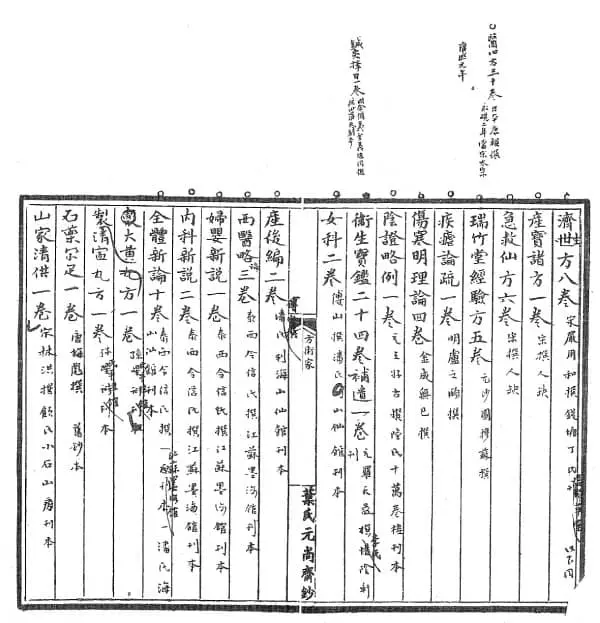 醫心方三十卷日本康賴撰
永觀二年當宋太宗
雍熙元年
鍼灸擇日一卷
濟世方八卷 宋嚴用和撰 錢塘丁氏刊
以下同
產寶諸方一卷 宋撰人缺
急救仙方六卷 宋撰人缺
瑞竹堂經驗方五卷 元沙圖穆蘇撰
痎瘧論疏一卷 明盧之頤撰
傷寒明理論四卷 金成無己撰
陰證略例一卷 元王好古撰 陸氏十萬卷樓刊本
衞生寶鑑二十四卷補遺一卷 元羅天益撰
女科二卷 傅山撰 潘氏海山仙館刊本
方術家
葉氏元尚齋鈔
產後編二卷 潘氏刊海山仙館本
西醫略論三卷 泰西合信氏撰 江蘇墨海館刊本
婦嬰新說一卷 泰西合信氏撰 江蘇墨海館刊本
內科新說二卷 泰西合信氏撰 江蘇墨海館刊本
全體新論十卷 泰西合信氏撰 一江蘇墨海館刊本 一潘氏海山仙館刊本
大黃丸方一卷
製清寧丸方一卷 孫
石藥爾雅一卷 唐梅彪撰 舊鈔本
山家清供一卷 宋林洪撰 顧氏小石山房刊本